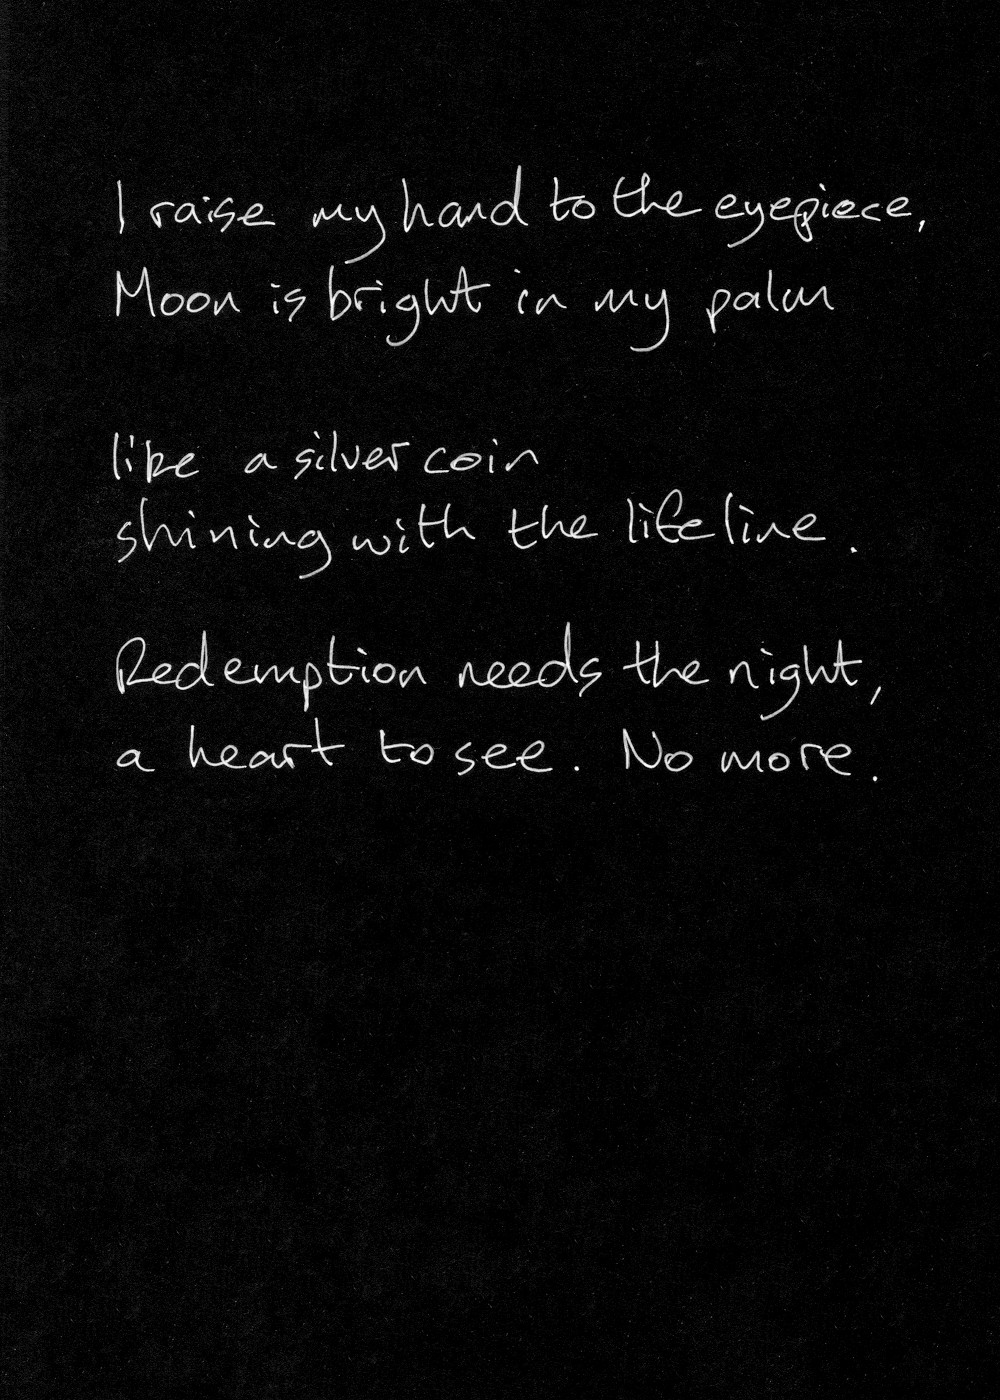 I raise my hand to the eyepiece,
Moon is bright in my palm
like a silver coin
shining with the lifeline.
Redemption needs the night,
a heart to see. No more.